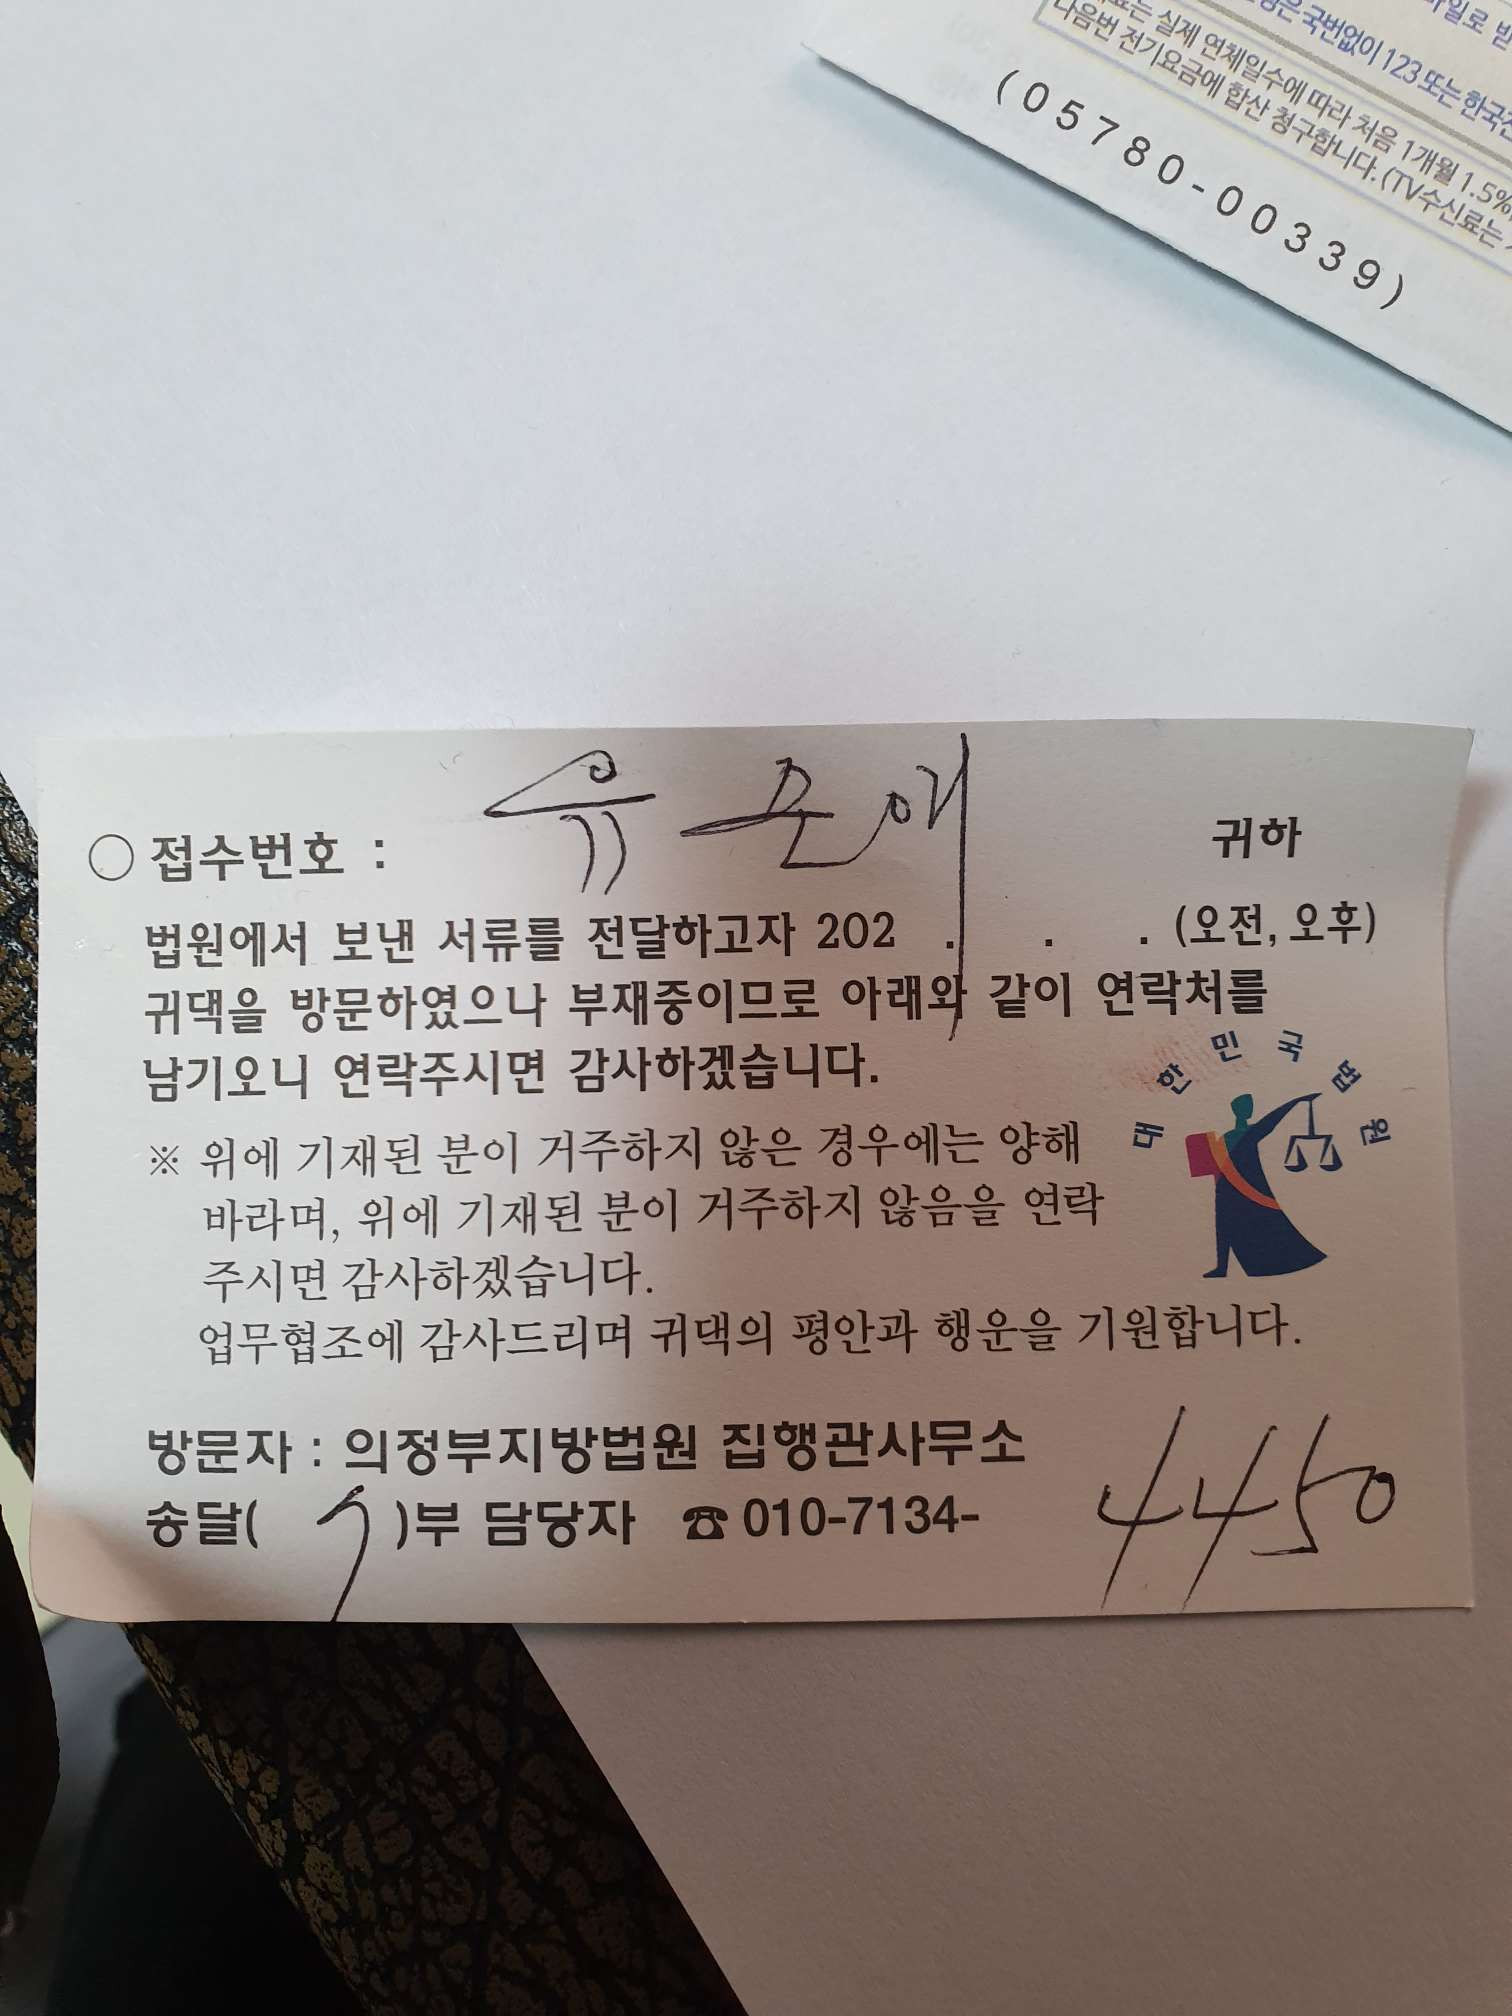 123 또는 한국전
료는 실제 연체일수에 따라 처음 1개월 1.5%
다음번 전기요금에 합산 청구합니다. (TV수신료는
(05780-00339)
○ 접수번호 : 귀하
법원에서 보낸 서류를 전달하고자 202 . . . (오전, 오후)
귀댁을 방문하였으나 부재중이므로 아래와 같이 연락처를
남기오니 연락주시면 감사하겠습니다.
대한민국법원
※ 위에 기재된 분이 거주하지 않은 경우에는 양해
바라며, 위에 기재된 분이 거주하지 않음을 연락
주시면 감사하겠습니다.
업무협조에 감사드리며 귀댁의 평안과 행운을 기원합니다.
방문자 : 의정부지방법원 집행관사무소
송달( )부 담당자 ☎ 010-7134- 4450